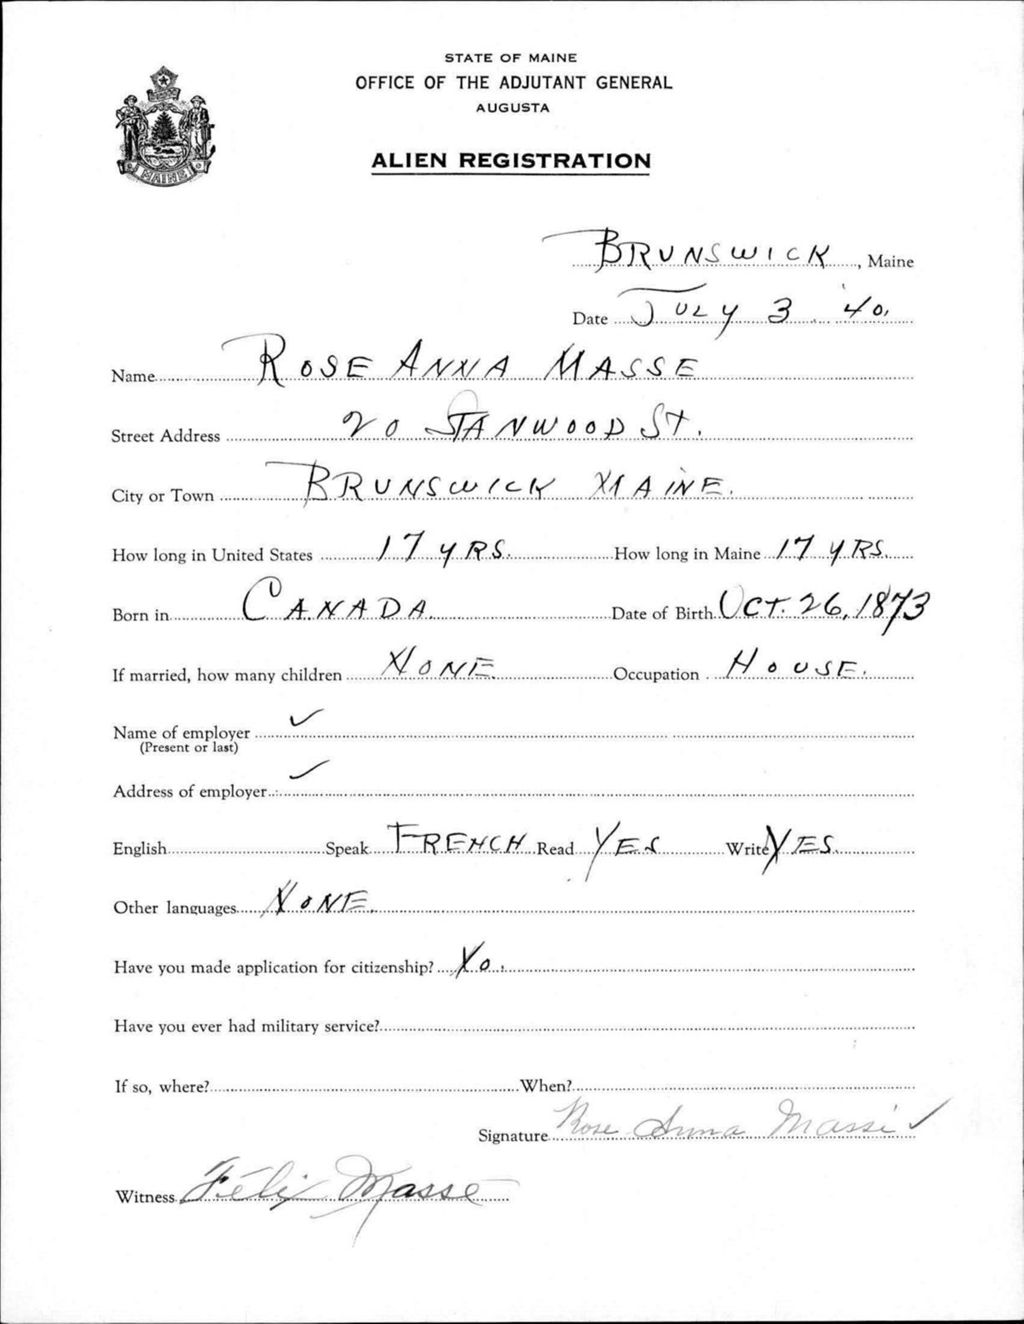 STATE OF MAINE
OFFICE OF THE ADJUTANT GENERAL
AUGUSTA
ALIEN REGISTRATION
MAINE
BRUNSWICK, Maine
Date JULY 3. '40.
Name ROSE ANNA MASSE
Street Address 20 STANWOOD ST.
City or Town BRUNSWICK MAINE.
How long in United States 17 YRS. How long in Maine 17 YRS.
Born in CANADA. Date of Birth OCT. 26, 1873
If married, how many children NONE. Occupation HOUSE.
Name of employer ✓
(Present or last)
Address of employer ✓
English Speak FRENCH Read YES Write YES.
Other languages NONE.
Have you made application for citizenship? NO.
Have you ever had military service?
If so, where? When?
Signature Rose Anna Massé ✓
Witness Félix Masse